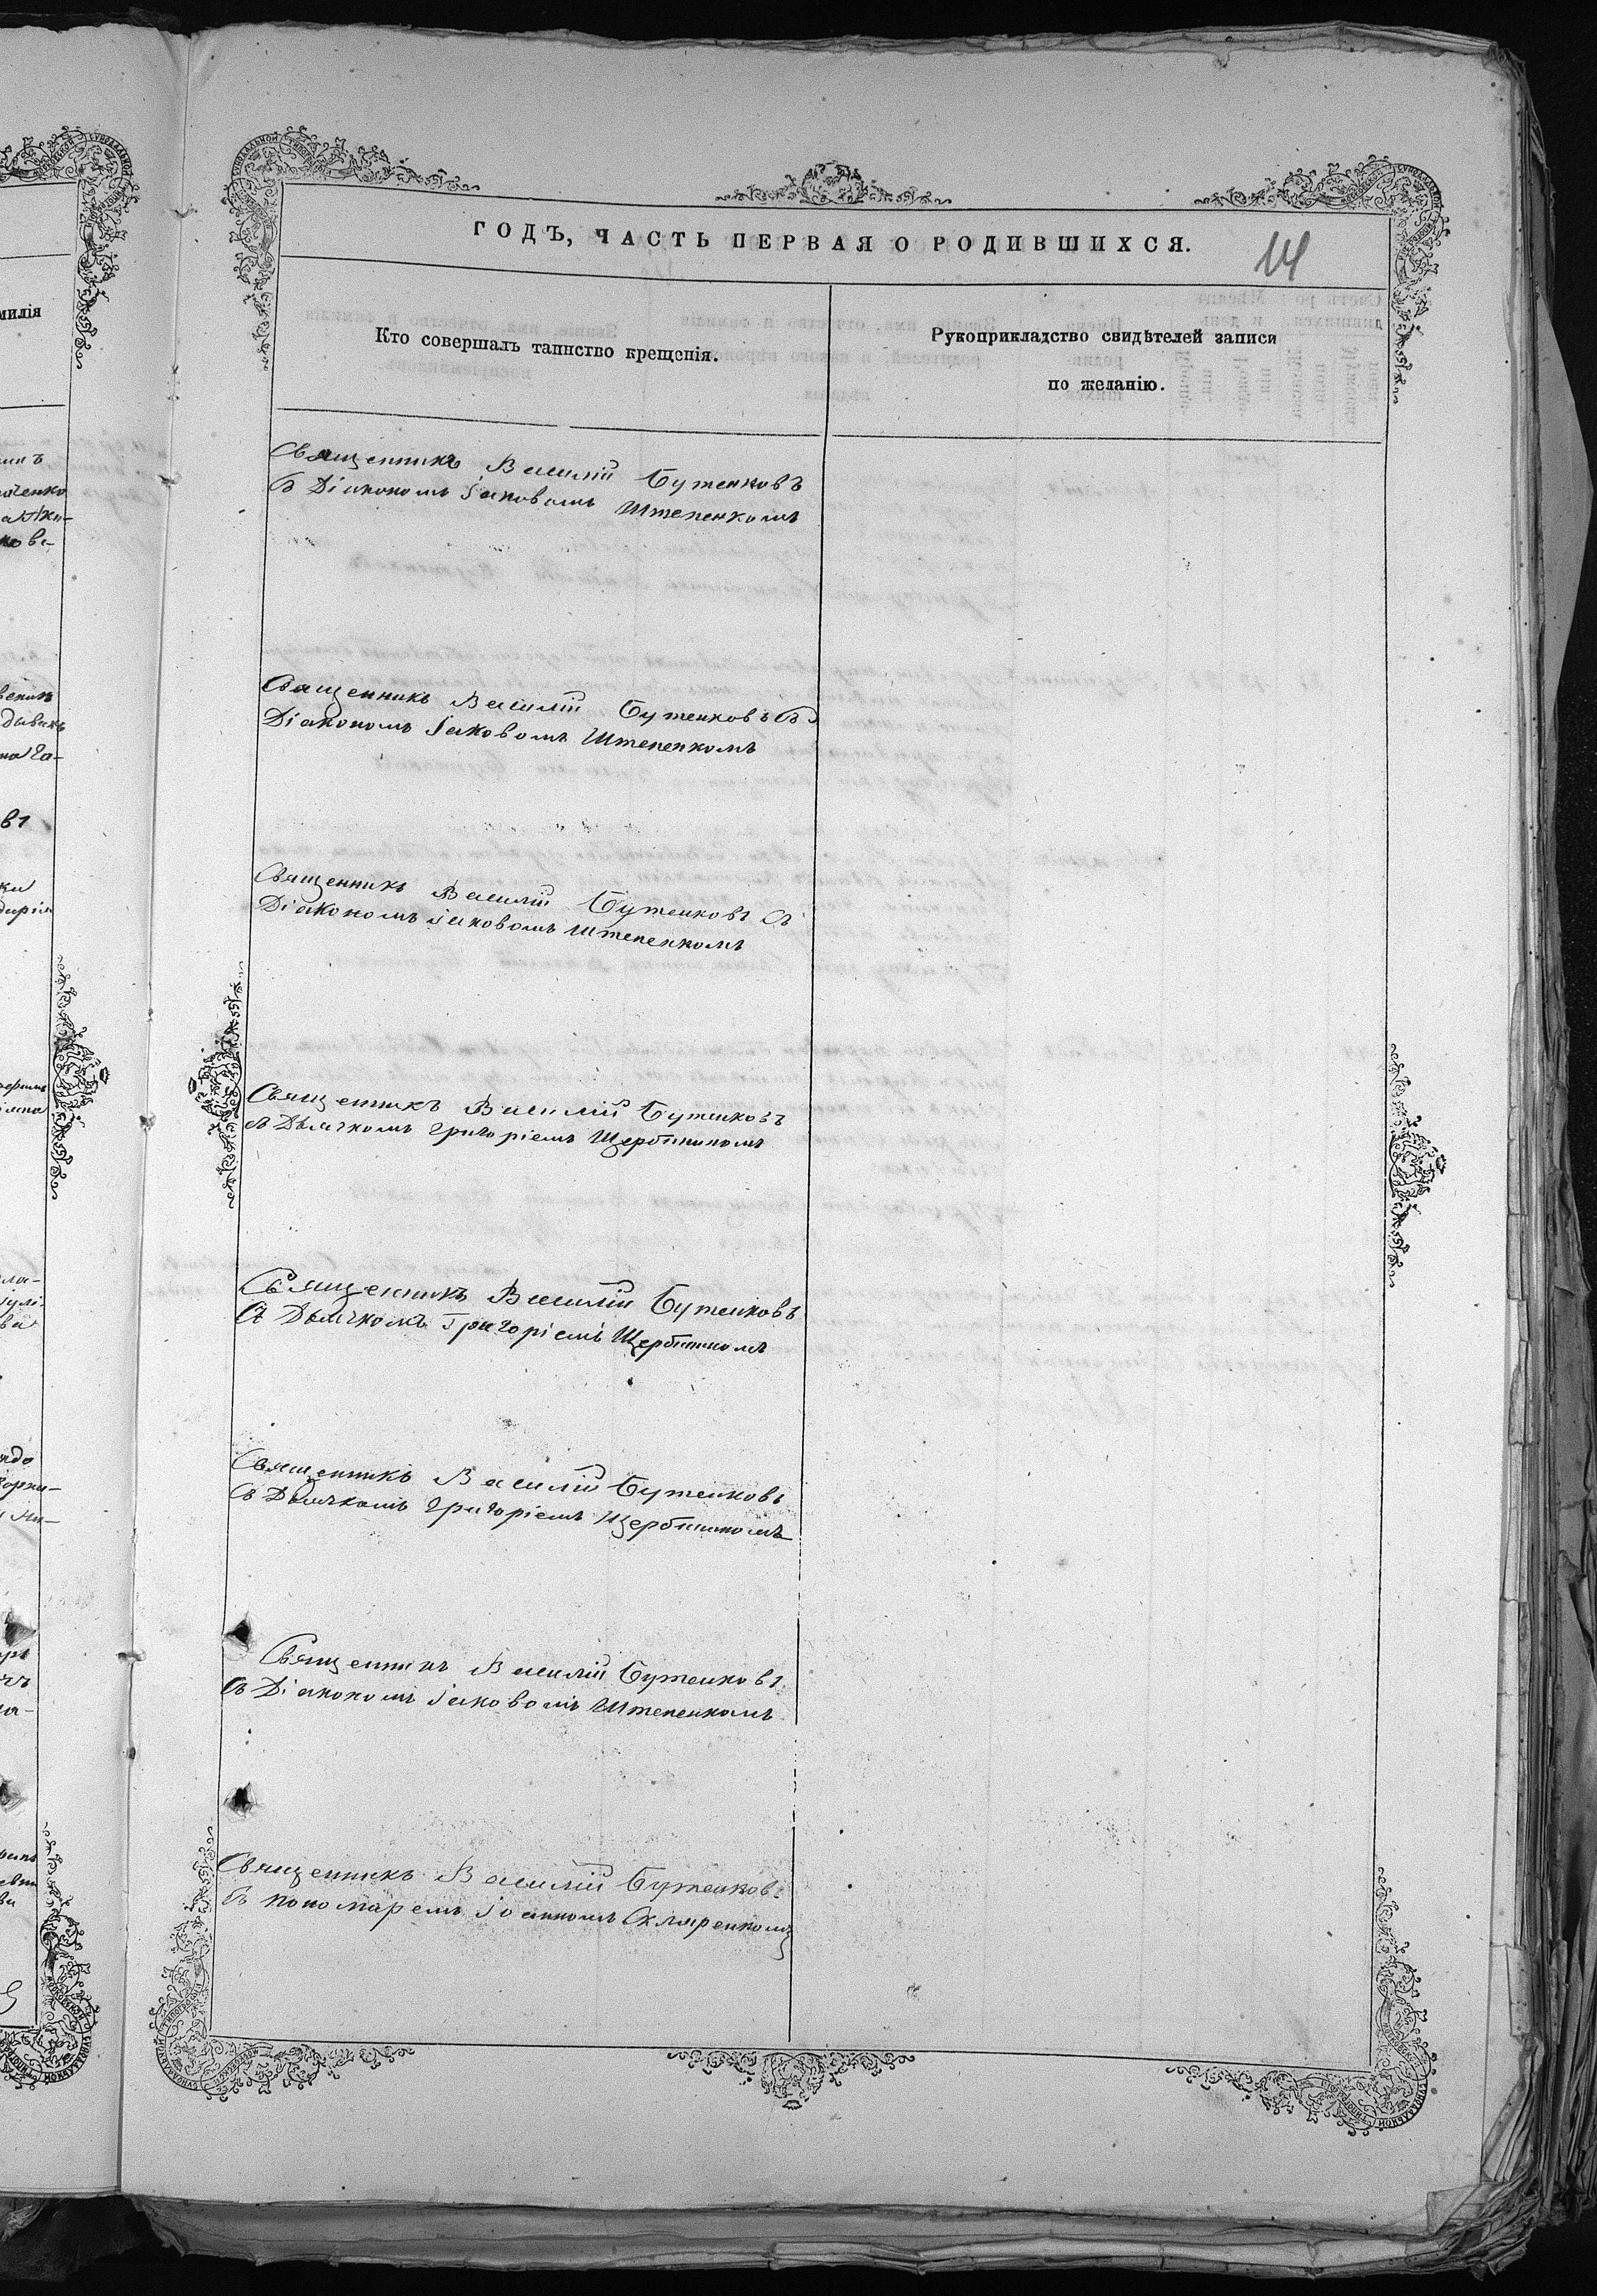 ГОДЪ, ЧАСТЬ ПЕРВАЯ О РОДИВШИХСЯ.
14
милія
Кто совершалъ таинство крещенія.
Рукоприкладство свидѣтелей записи
по желанію.
Священникъ Василій Бутенковъ
съ Діакономъ Іаковомъ Штепенкомъ
Священникъ Василій Бутенковъ съ
Діакономъ Іаковомъ Штепенкомъ
Священникъ Василій Бутенковъ съ
Діакономъ Іаковомъ Штепенкомъ
Священникъ Василій Бутенковъ
съ Дьячкомъ Григоріемъ Щербининомъ
Священникъ Василій Бутенковъ
съ Дьячкомъ Григоріемъ Щербининомъ
Священникъ Василій Бутенковъ
съ Дьячкомъ Григоріемъ Щербининомъ
Священникъ Василій Бутенковъ
съ Діакономъ Іаковомъ Штепенкомъ
Священникъ Василій Бутенковъ
съ пономаремъ Іоанномъ Скляренкомъ